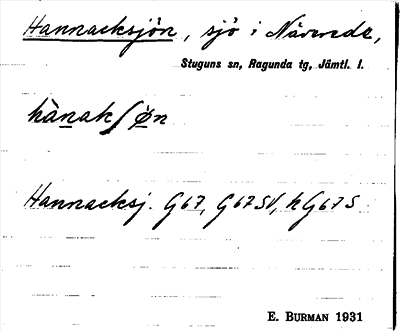 Hannacksjön, sjö i Näverede,
Stuguns sn, Ragunda tg, Jämtl. l.
hànakʃøn
Hannacksj. G67, G67SV, hG67S
E. BURMAN 1931